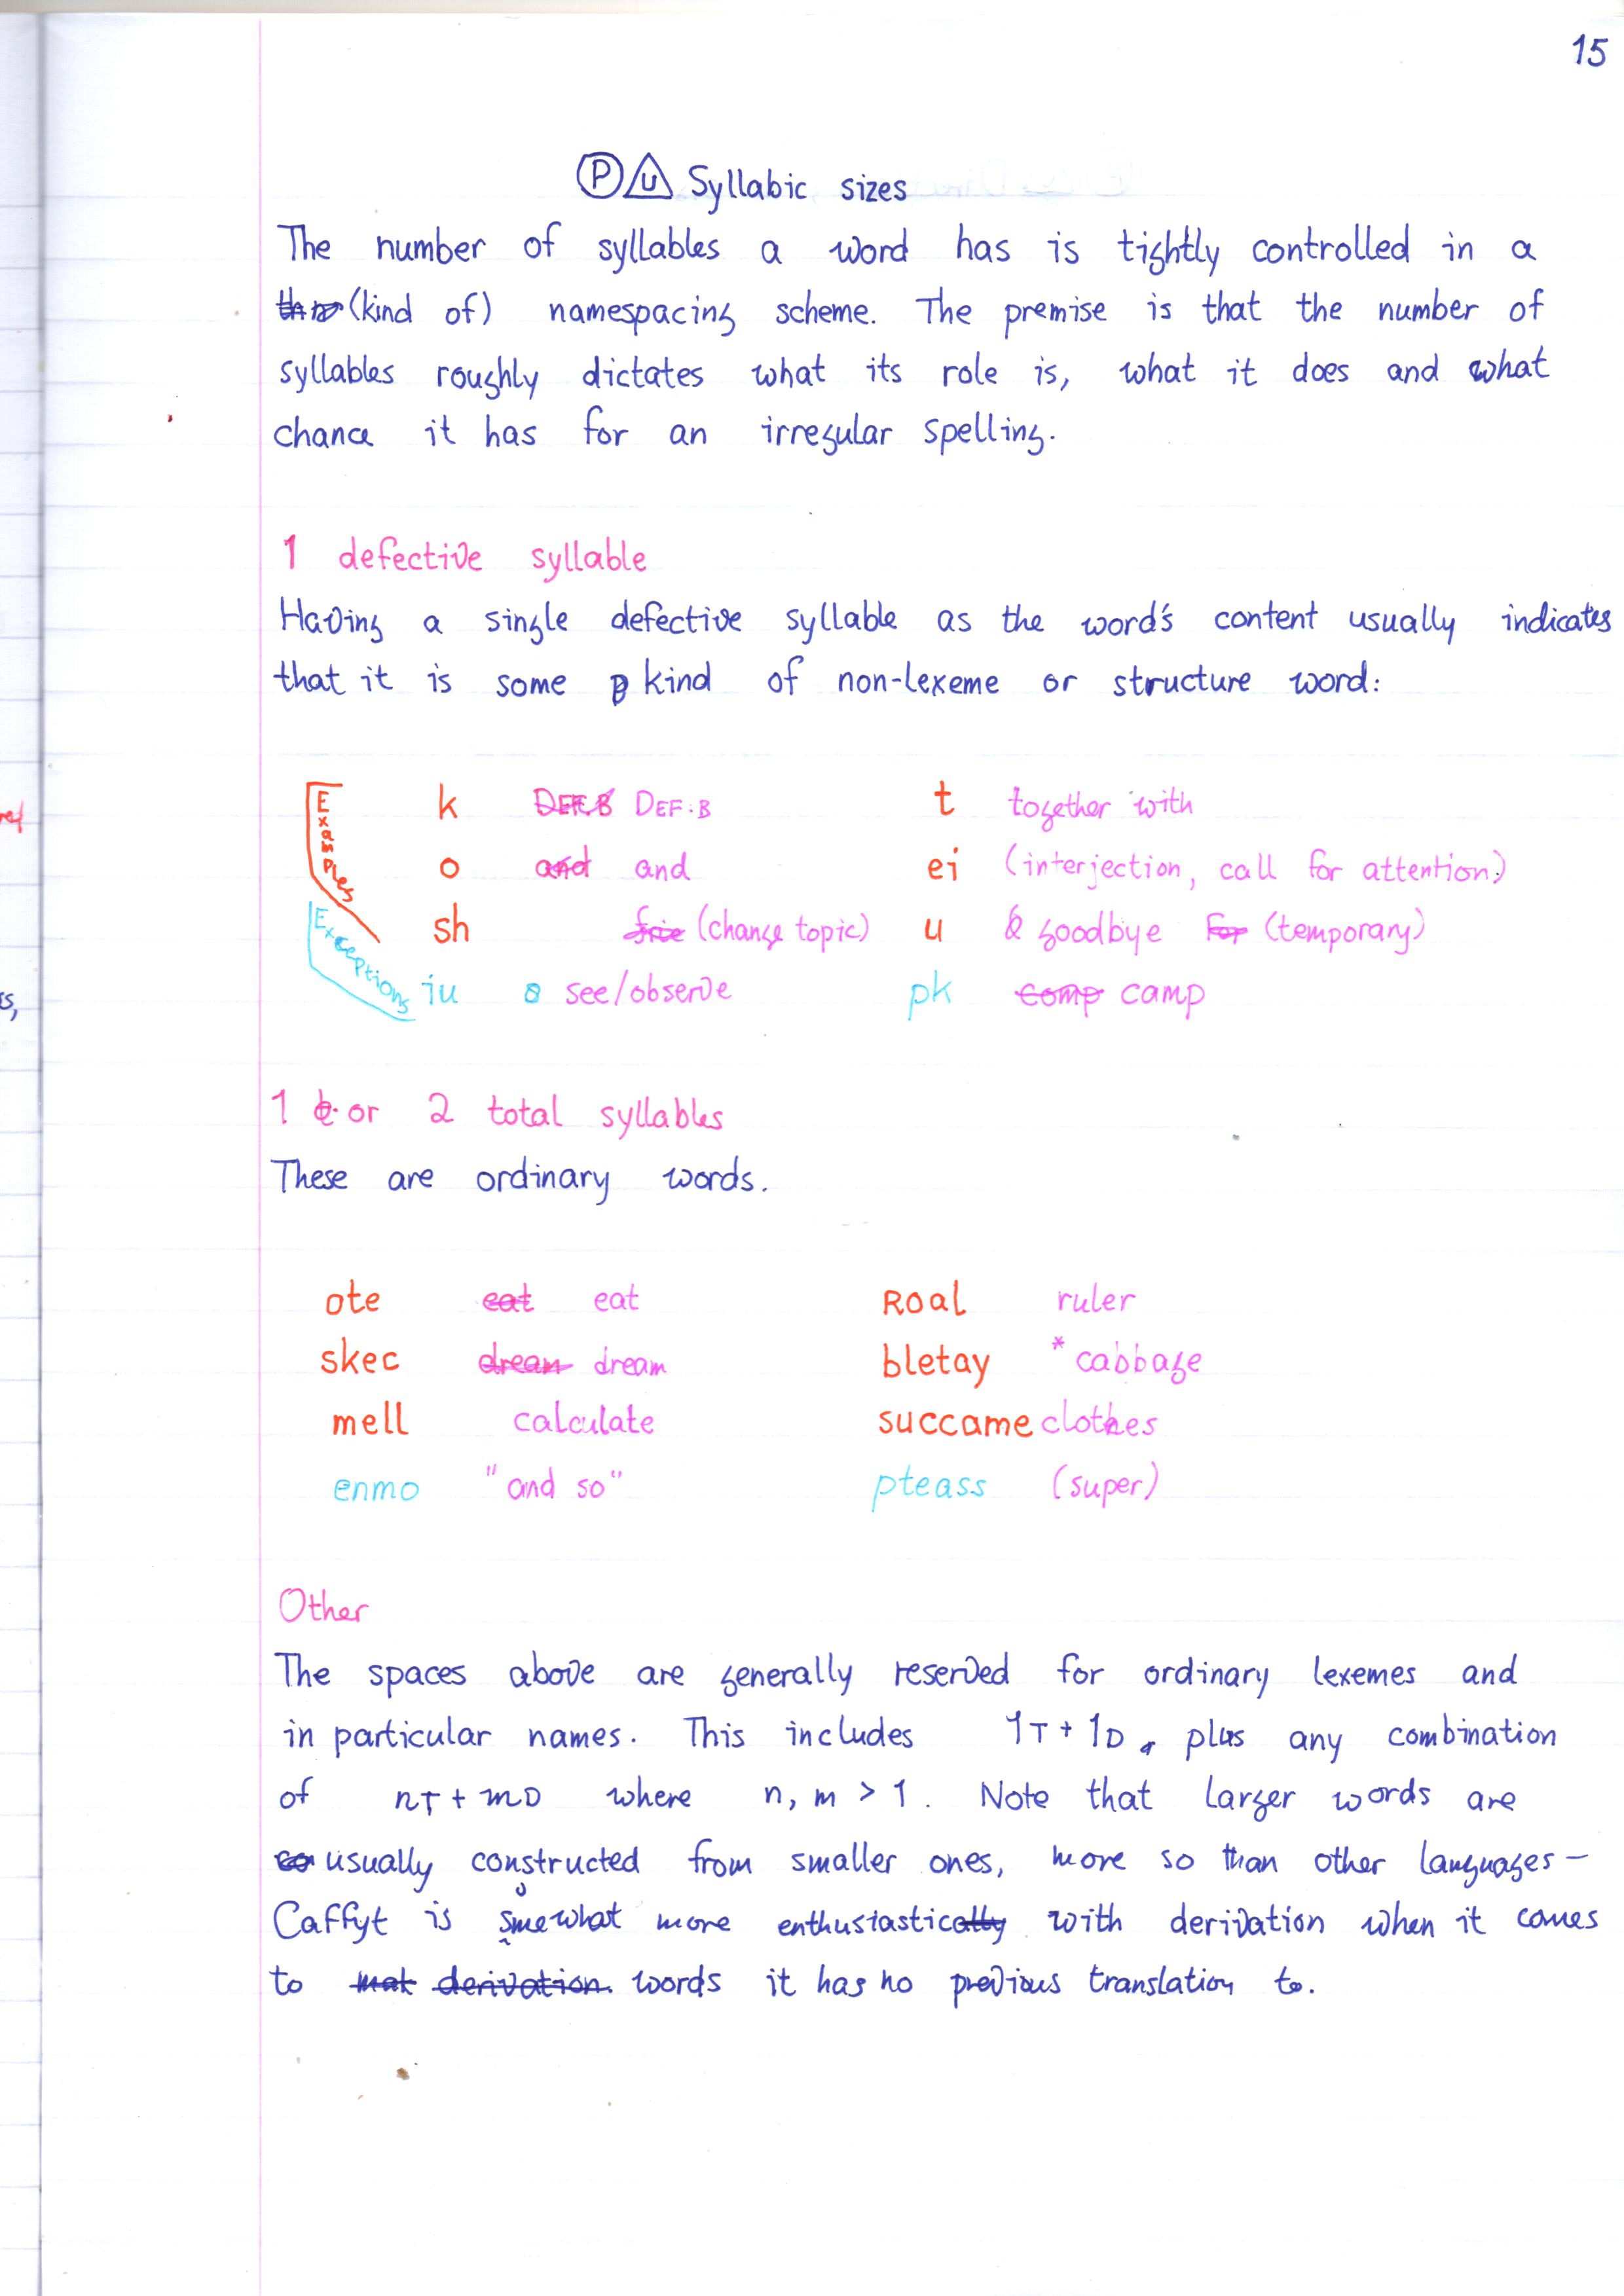 15
P U Syllabic sizes
The number of syllables a word has is tightly controlled in a
(kind of) namespacing scheme. The premise is that the number of
syllables roughly dictates what its role is, what it does and what
chance it has for an irregular spelling.
1 defective syllable
Having a single defective syllable as the word's content usually indicates
that it is some kind of non-lexeme or structure word:
Examples
k DEF.B DEF.B t together with
o and and ei (interjection, call for attention)
sh (change topic) u goodbye for (temporary)
Exceptions
iu see/observe pk comp camp
1 or 2 total syllables
These are ordinary words.
ote eat eat Roal ruler
skec dream dream bletay *cabbage
mell calculate succame clothes
enmo "and so" pteass (super)
Other
The spaces above are generally reserved for ordinary lexemes and
in particular names. This includes 1T + 1D, plus any combination
of nT + mD where n, m > 1. Note that larger words are
co usually constructed from smaller ones, more so than other languages –
Caffyt is somewhat more enthusiastically with derivation when it comes
to derivation. words it has no previous translation to.
ref
s,